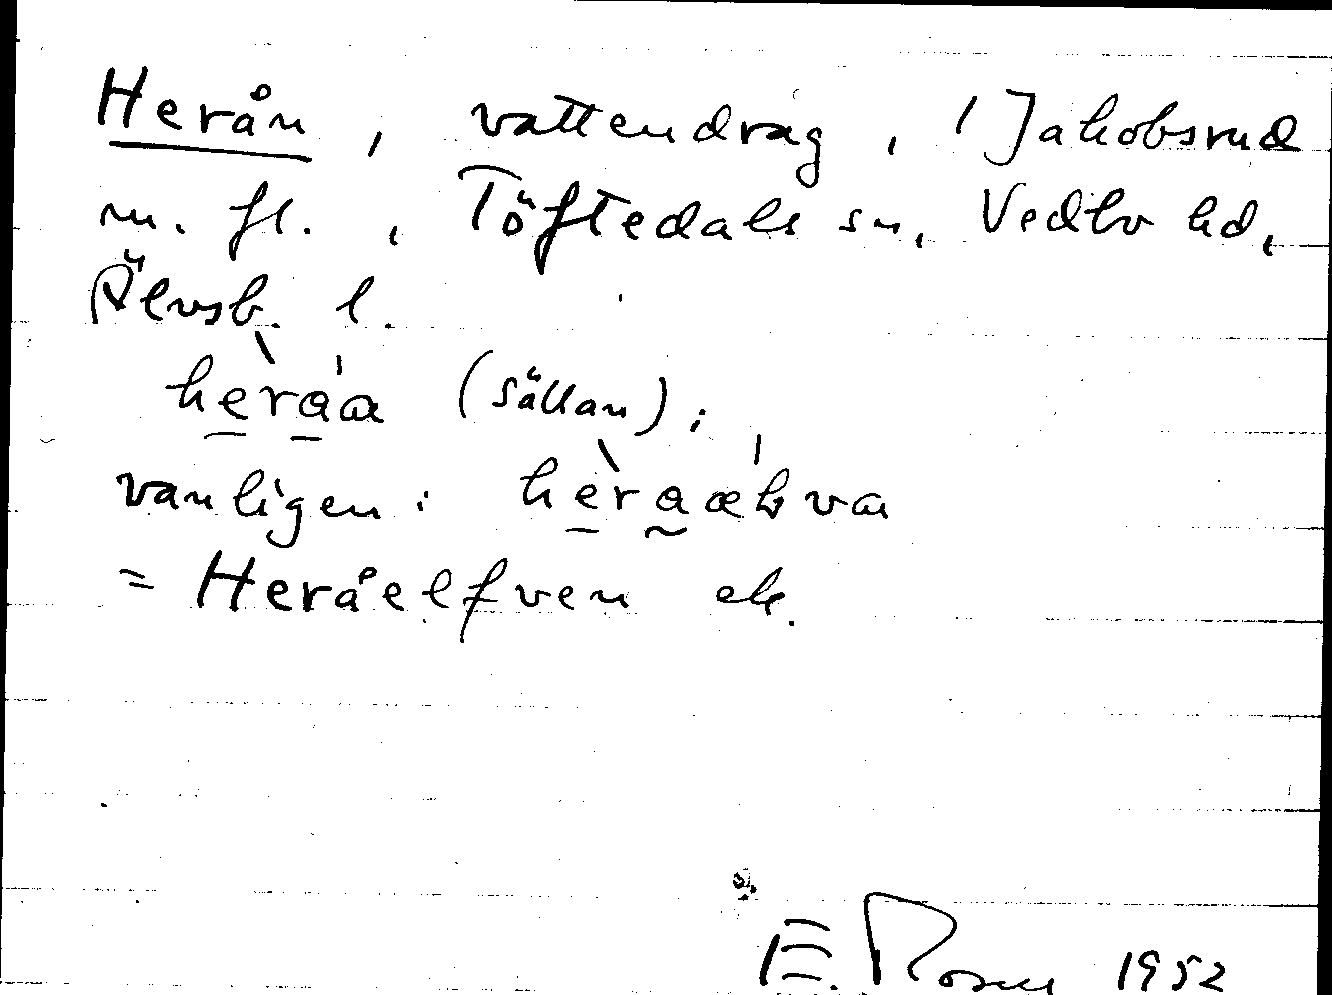 Herån, vattendrag, i Jakobsrud
m. fl., Töftedals sn, Vedbo hd,
Älvsb. l.
hèráa (sällan);
vanligen: hèraælva
= Heråelfven ek.
E. Rosen 1952